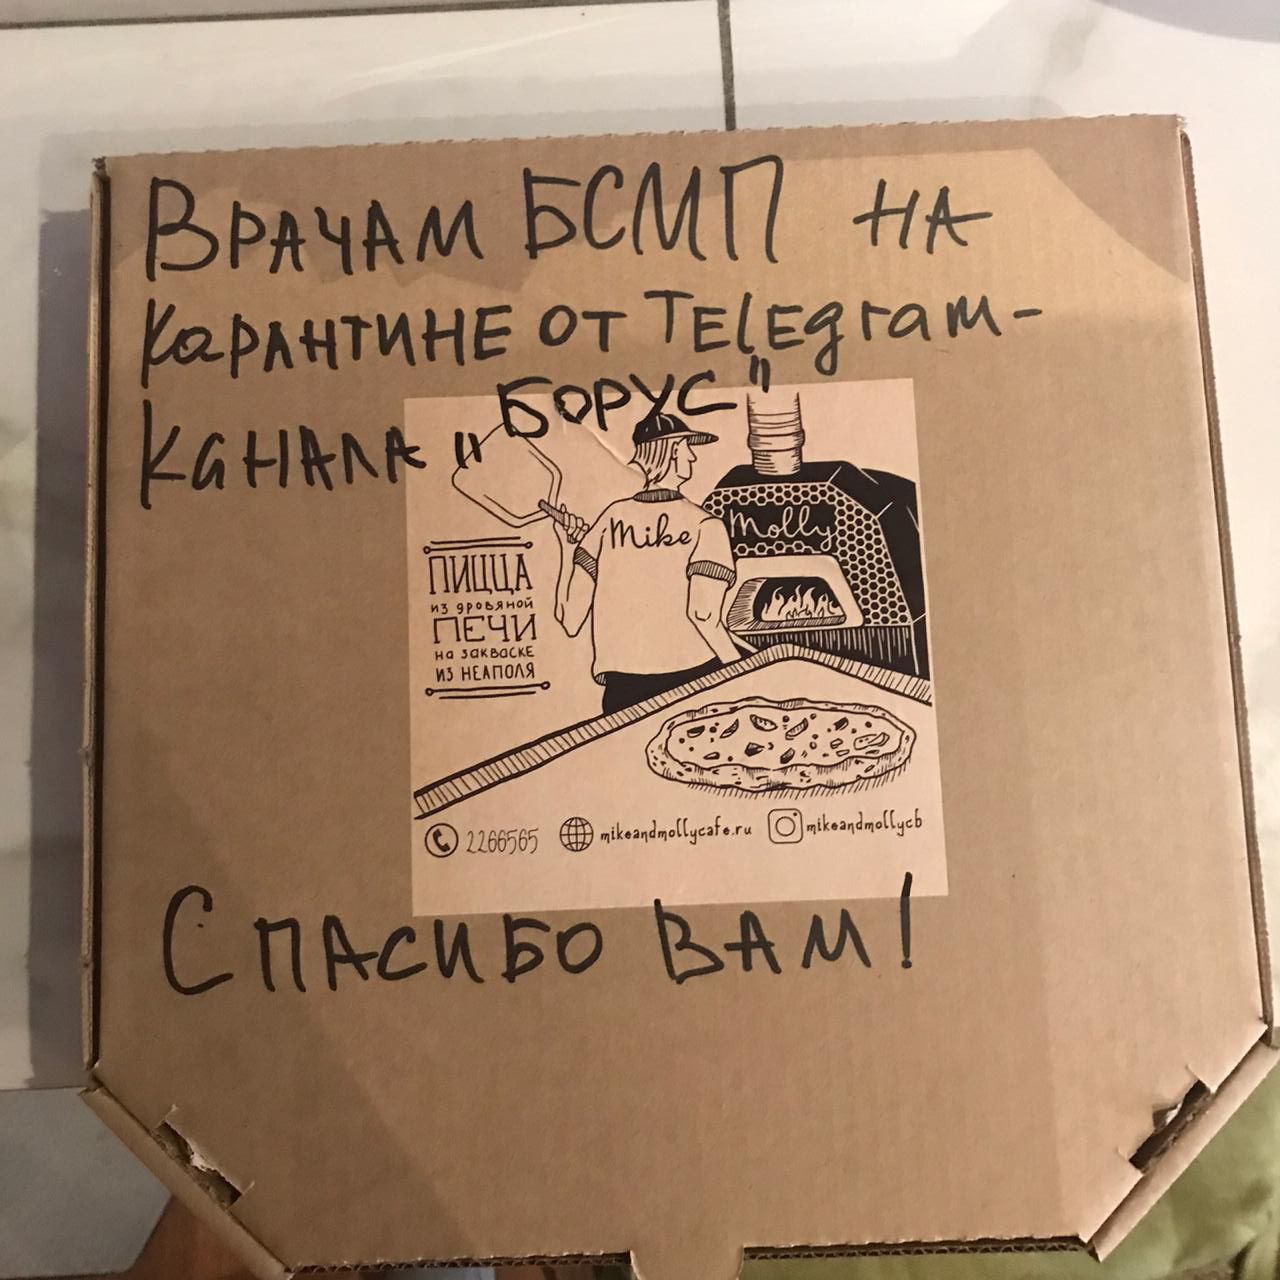 ВРАЧАМ БСМП НА
КАРАНТИНЕ ОТ TELEgram-
КАНАЛА „БОРУС"
Mike
Molly
ПИЦЦА
из дровяной
ПЕЧИ
на закваске
из Неаполя
2266565
mikeandmollycafe.ru
mikeandmollycb
СПАСИБО ВАМ!